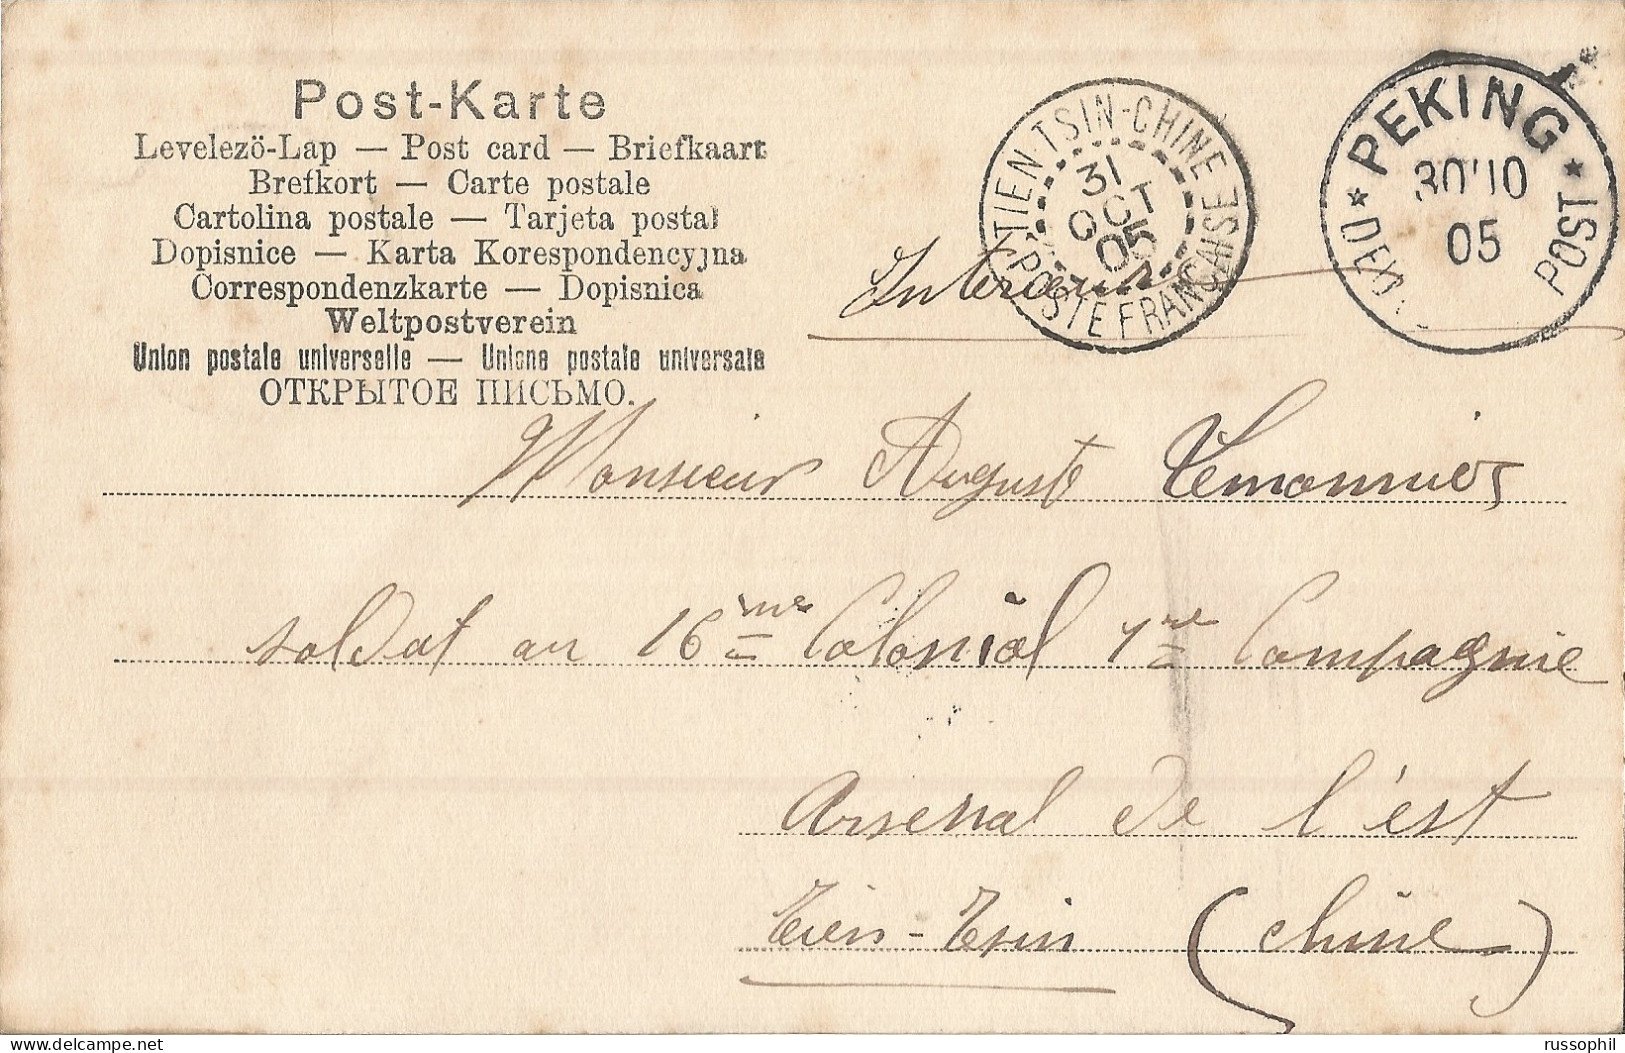 Post-Karte
Levelezö-Lap — Post card — Briefkaart
Brefkort — Carte postale
Cartolina postale — Tarjeta postal
Dopisnice — Karta Korespondencyjna
Correspondenzkarte — Dopisnica
Weltpostverein
Union postale universelle — Unione postale universale
ОТКРЫТОЕ ПИСЬМО.
TIEN-TSIN-CHINE
31
OCT
05
POSTE FRANÇAISE
PEKING
30 10
05
POST
Monsieur Auguste Lemonnier
soldat au 16me Colonial 1re Compagnie
Arsenal de l'est
Tien-Tsin (Chine)
russophil
www.delcampe.net